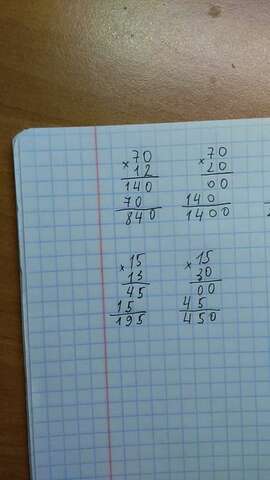 ×70
12
140
70
840
×70
20
00
140
1400
×15
13
45
15
195
×15
30
00
45
450